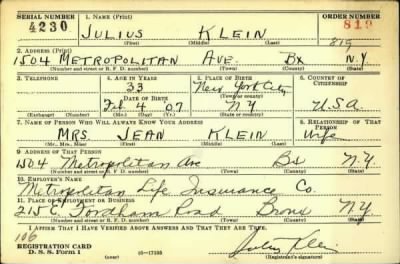 SERIAL NUMBER 1. NAME (Print) ORDER NUMBER
4230 JULIUS KLEIN 819
(First) (Middle) (Last) 819
2. ADDRESS (Print)
1504 METROPOLITAN AVE. BX N.Y
(Number and street or R. F. D. number) (Town) (County) (State)
3. TELEPHONE 4. AGE IN YEARS 5. PLACE OF BIRTH 6. COUNTRY OF CITIZENSHIP
33 New York City
DATE OF BIRTH (Town or county)
Feb 4 07 NY U.S.A
(Exchange) (Number) (Mo.) (Day) (Yr.) (State or country)
7. NAME OF PERSON WHO WILL ALWAYS KNOW YOUR ADDRESS 8. RELATIONSHIP OF THAT PERSON
MRS. JEAN KLEIN Wife
(Mr., Mrs., Miss) (First) (Middle) (Last)
9. ADDRESS OF THAT PERSON
1504 Metropolitan Ave Bx N.Y
(Number and street or R. F. D. number) (Town) (County) (State)
10. EMPLOYER'S NAME
Metropolitan Life Insurance Co.
11. PLACE OF EMPLOYMENT OR BUSINESS
215 E. Fordham Road Bronx NY
(Number and street or R. F. D. number) (Town) (County) (State)
I AFFIRM THAT I HAVE VERIFIED ABOVE ANSWERS AND THAT THEY ARE TRUE.
106
REGISTRATION CARD Julius Klein
D. S. S. FORM 1 16—17105 (Registrant's signature)